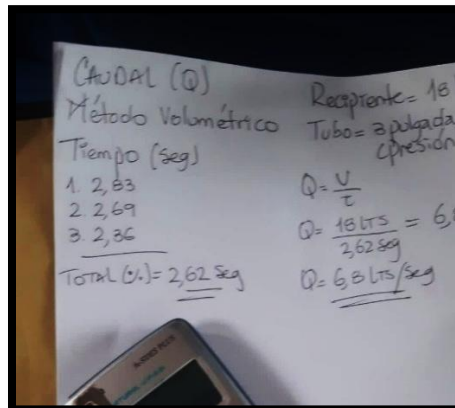 CAUDAL (Q)
Método Volumétrico
Tiempo (seg)
1. 2,83
2. 2,69
3. 2,36
TOTAL (%) = 2,62 seg
Recipiente = 18
Tubo = 3 pulgada
(presión
Q = V/t
Q = 18 LTS / 2,62 seg = 6,8
Q = 6,8 LTS/seg